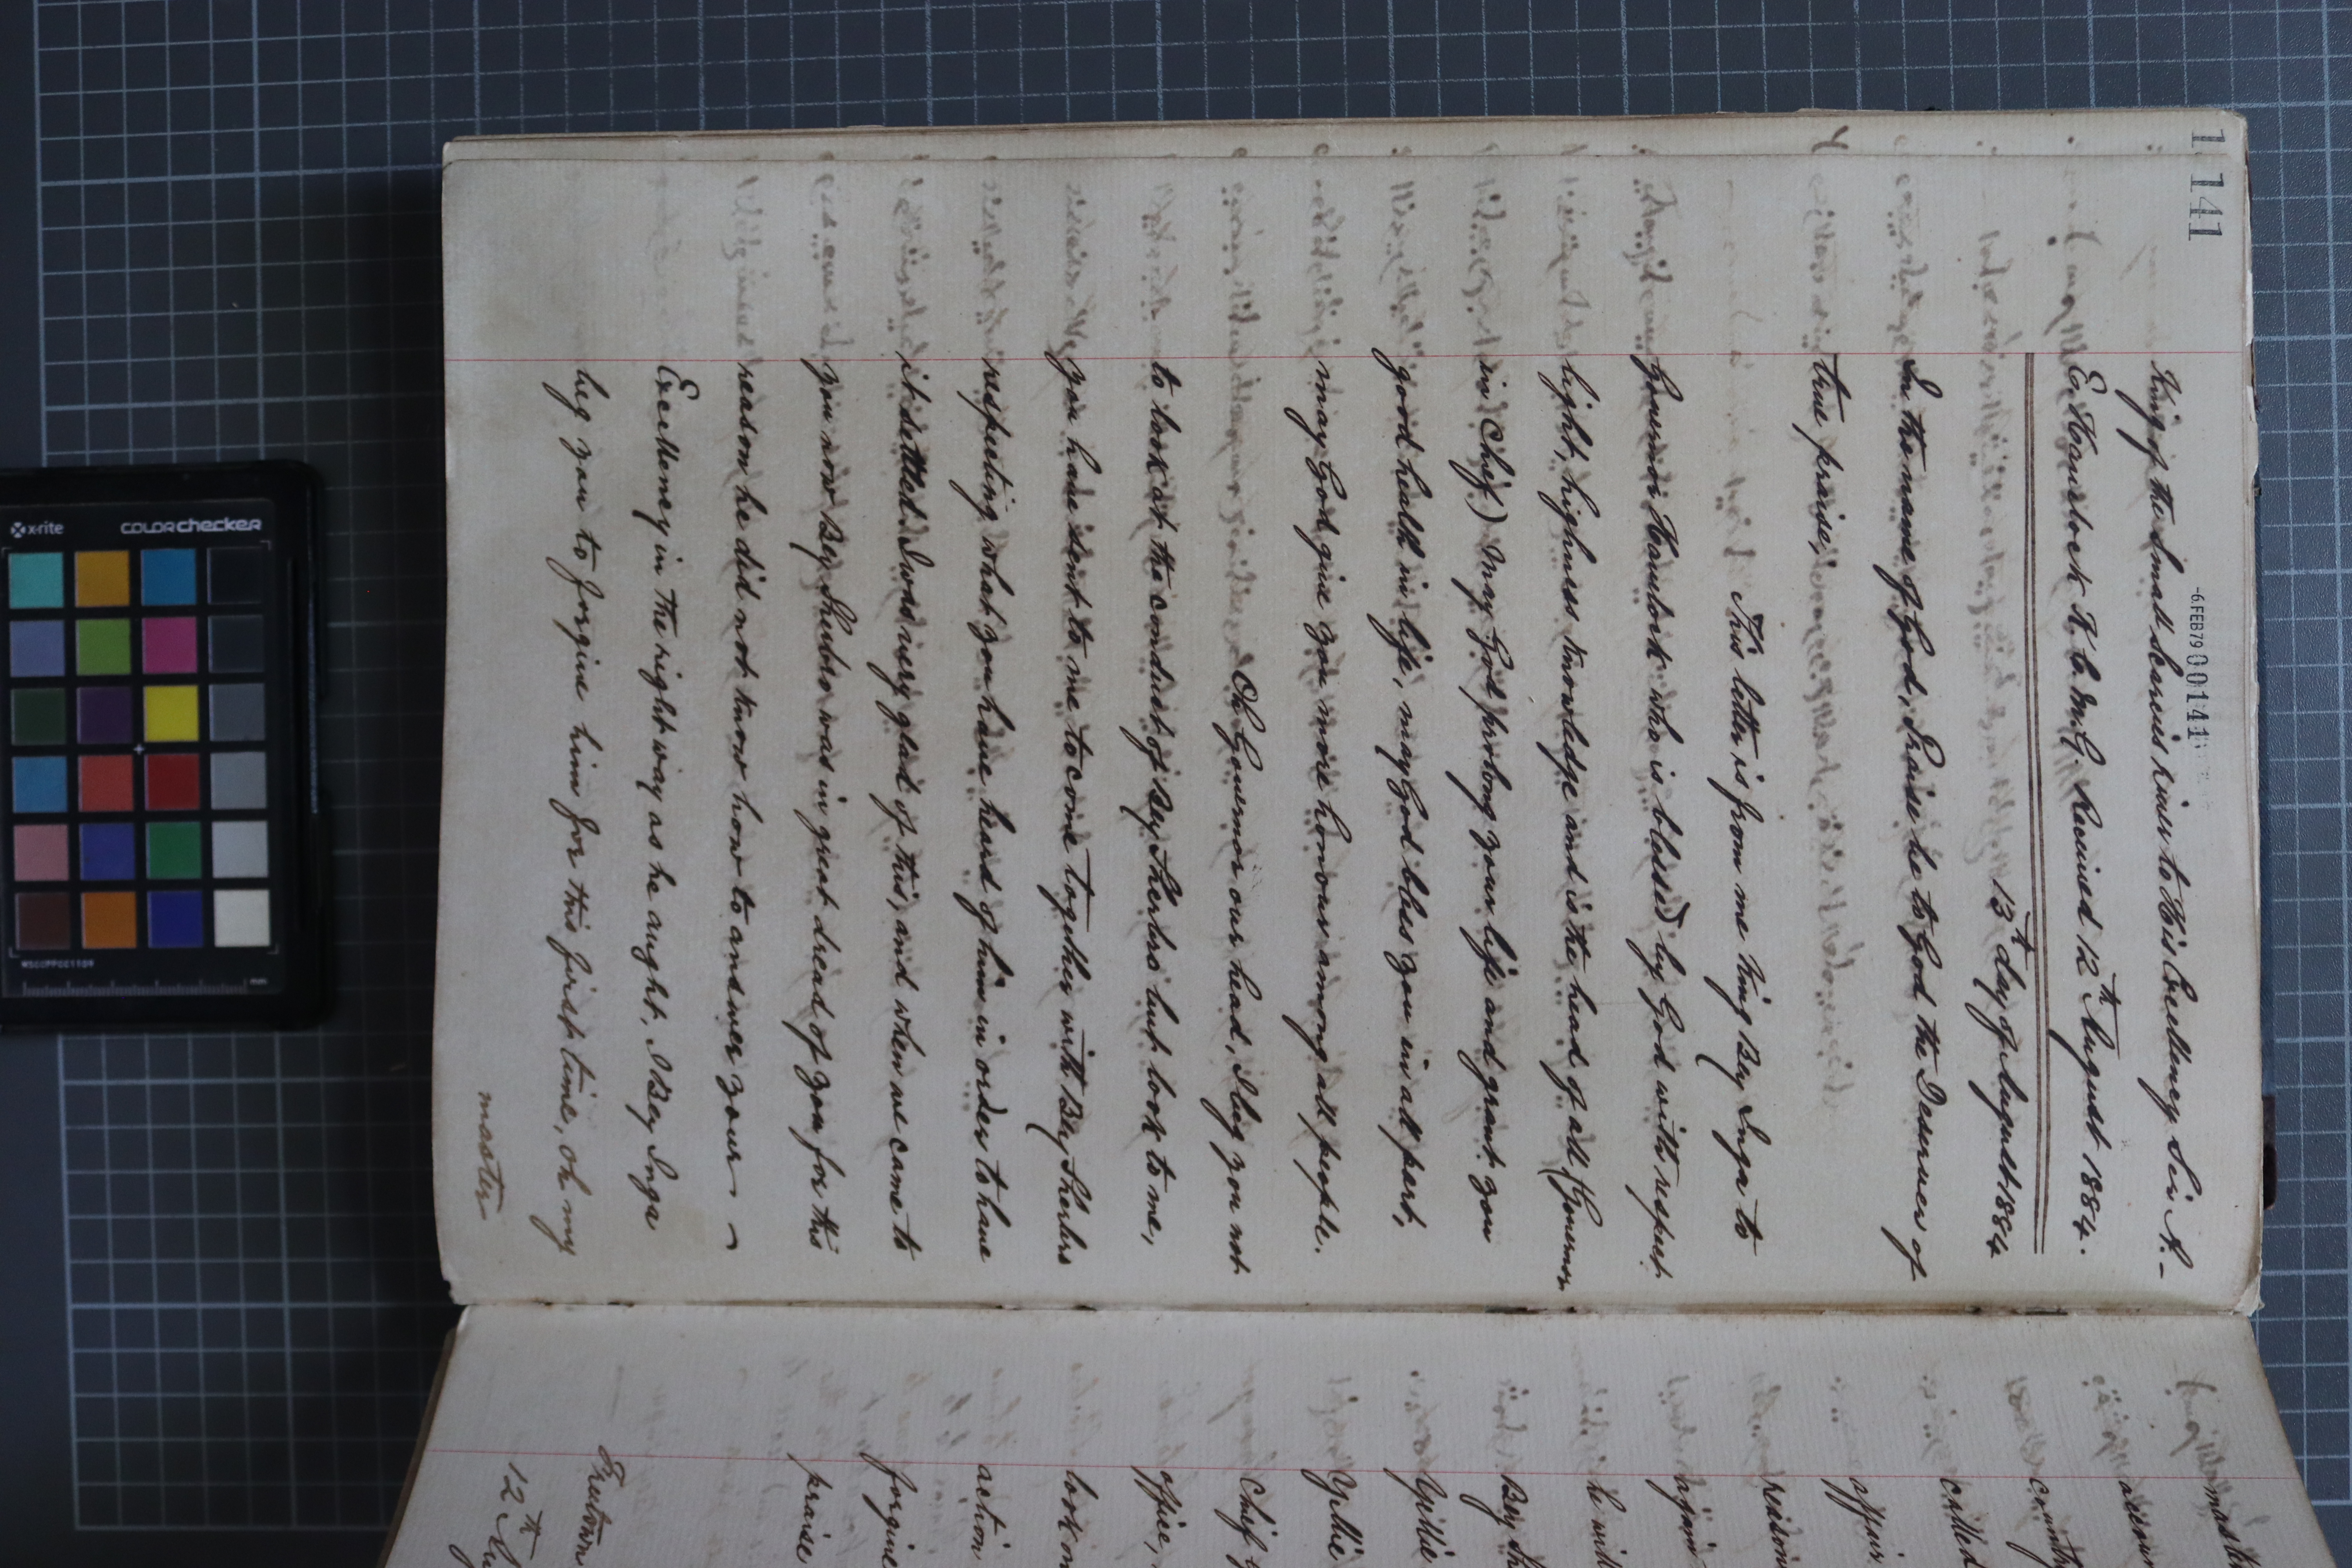 141
-6 FEB 79 00141
King of the Small Scarcies River to His Excellency Sir A-
E. Havelock K.C.M.G. Received 12th August 1884.
13th day of August 1884
In the name of God, Praise be to God the Deserver of
true praise,
This letter is from me King Bey Inga to
Governor Havelock who is blessed by God with respect,
light, highness knowledge and is the head of all (Governor
in Chief) May God prolong your life and grant you
good health in life, may God bless you in all part,
may God give you more honour among all people.
Oh Governor our head, I beg you not
to look at the conduct of Bey Sherbro but look to me,
you have sent to me to come together with Bey Sherbro
respecting what you have heard of him in order to have
it settled. I was very glad of this, and when we came to
you now Bey Sherbro was in great dread of you for this
reason he did not know how to answer your
Excellency in the right way as he aught, I Bey Inga
beg you to forgive him for this first time, oh my
master
master
also
country
called
affair
reason
he will
Bey Sh
Yellie
Yellie
Chief
office,
look
action
forgive
praise
Freetown
12th Au